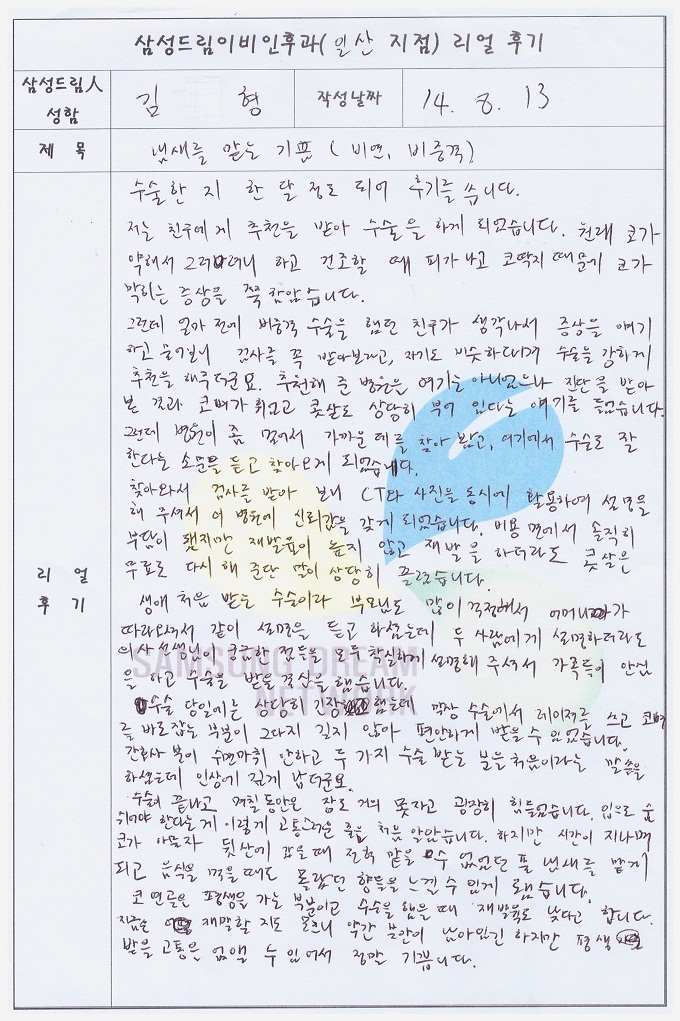 삼성드림이비인후과(일산 지점) 리얼 후기
삼성드림人 성함
김 형
작성날짜
14. 8. 13
제 목
냄새를 맡는 기쁨 ( 비염, 비중격 )
리 얼 후 기
수술한 지 한 달 정도 되어 후기를 씁니다.
저는 친구에게 추천을 받아 수술을 하게 되었습니다. 원래 코가
약해서 그러려니 하고 건조할 때 피가 나고 코딱지 때문에 코가
막히는 증상을 쭉 참았습니다.
그런데 얼마 전에 비중격 수술을 했던 친구가 생각나서 증상을 얘기
하고 물어보니 검사를 꼭 받아보라고, 자기도 비슷하다며 수술을 강하게
추천을 해주더군요. 추천해 준 병원은 여기는 아니었으나 진단을 받아
본 결과 코뼈가 휘었고 콧살도 상당히 부어 있다는 얘기를 들었습니다.
그런데 병원이 좀 멀어서 가까운 데를 찾아 봤고, 여기에서 수술로 잘
한다는 소문을 듣고 찾아오게 되었습니다.
찾아와서 검사를 받아 보니 CT와 사진을 동시에 활용하여 설명을
해 주셔서 이 병원에 신뢰감을 갖게 되었습니다. 비용 면에서 솔직히
부담이 됐지만 재발율이 높지 않고 재발을 하더라도 콧살은
무료로 다시 해 준단 말이 상당히 끌렸습니다.
생애 처음 받는 수술이라 부모님도 많이 걱정해서 어머니가
따라오셔서 같이 설명을 듣고 하셨는데 두 사람에게 설명하더라도
의사 선생님이 궁금한 것들을 모두 확실하게 설명해 주셔서 가족들이 안심
을 하고 수술을 받을 결심을 했습니다.
수술 당일에는 상당히 긴장했는데 막상 수술에서 레이저를 쓰고 코뼈
를 바로잡는 부분이 그다지 길지 않아 편안하게 받을 수 있었습니다.
간호사 분이 수면마취 안하고 두 가지 수술 받는 분을 처음이라는 말씀을
하셨는데 인상에 깊게 남더군요.
수술이 끝나고 며칠동안은 잠도 거의 못자고 굉장히 힘들었습니다. 입으로 숨
쉬어야 한다는게 이렇게 고통스러운 줄을 처음 알았습니다. 하지만 시간이 지나며
코가 아물자 뒷산에 갔을 때 전혀 맡을 수 없었던 풀 냄새를 맡게
되고 음식을 먹을 때도 몰랐던 향들을 느낄 수 있게 됐습니다.
코 연골은 평생을 가는 부분이고 수술을 했을 때 재발율도 낮다고 합니다.
지금은 재발할 지도 모르니 약간 불안이 남아있긴 하지만 평생
받을 고통은 없앨 수 있어서 정말 기쁩니다.
SAMSUNG DREAM
NETWORK